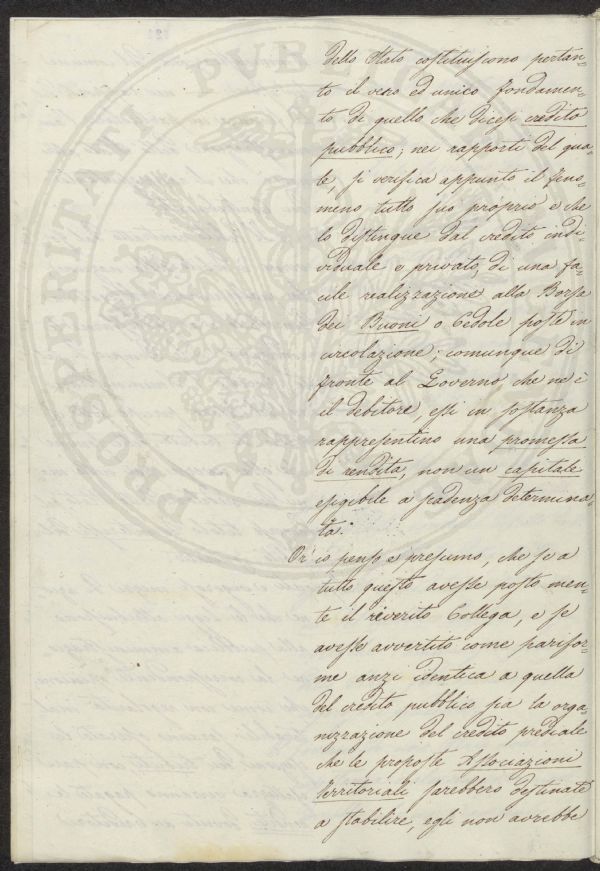 PROSPERITATI PUBLICAE
dello Stato costituiscono pertan=
to il vero ed unico fondamen=
to di quello che dicesi credito
pubblico; nei rapporti del qua=
le, si verifica appunto il feno=
meno tutto suo proprio e che
lo distingue dal credito indi=
viduale e privato, di una fa=
cile realizzazione alla Borsa
dei Buoni o Cedole poste in
circolazione; comunque di
fronte al Governo che ne è
il debitore, essi in sostanza
rappresentino una promessa
di rendita, non un capitale
esigibile a scadenza determina=
ta.
Or' io penso e presumo, che se a
tutto questo avesse posto men=
te il riverito Collega, e se
avesse avvertito come parifor=
me anzi identica a quella
del credito pubblico sia la orga=
nizzazione del credito prediale
che le proposte Associazioni
Territoriali sarebbero destinate
a stabilire, egli non avrebbe